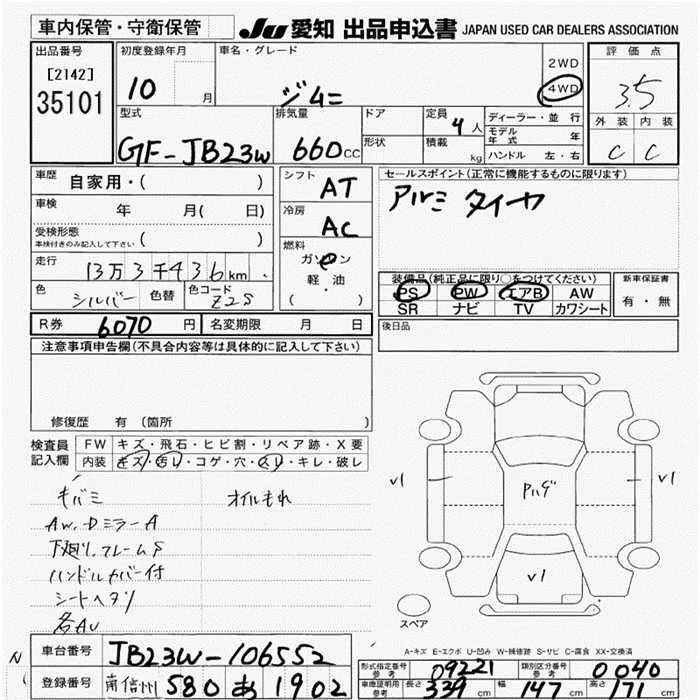 車内保管・守衛保管
JU 愛知 出品申込書 JAPAN USED CAR DEALERS ASSOCIATION
出品番号
[2142]
35101
初度登録年月
10 月
車名・グレード
ジムニー
2WD
4WD
評価点
3.5
外装 内装
C C
型式
GF-JB23W
排気量
660cc
ドア
形状
定員
4人
積載
kg
ディーラー・並行
モデル年式 年
ハンドル 左・右
車歴 自家用・( )
車検 年 月( 日)
受検形態
車検付きのみ記入して下さい ( )
走行 13万3千436km
色 シルバー 色替 色コード Z2S
シフト AT
冷房 AC
燃料
ガソリン
軽油
( ・ )
セールスポイント(正常に機能するものに限ります)
アルミ タイヤ
装備品(純正品に限り○をつけてください)
PS PW エアB AW
SR ナビ TV カワシート
新車保証書
有・無
R券 6070円 名変期限 月 日
後日品
注意事項申告欄(不具合内容等は具体的に記入して下さい)
修復歴 有 (箇所 )
検査員記入欄
FW キズ・飛石・ヒビ割・リペア跡・X要
内装 キズ・汚レ・コゲ・穴・スレ・キレ・破レ
キバミ オイルもれ
AW、Dミラー A
下廻り、フレームS
ハンドルカバー付
シートヘタリ
各AU
V1
V1
V1
スペア
A-キズ E-エクボ U-凹み W-補修跡 S-サビ C-腐食 XX-交換済
車台番号 JB23W-106552
登録番号 南信州 580 あ 1902
形式指定番号 参考 09221 類別区分番号 参考 0040
車庫証明用 参考 長さ 339cm 幅 147cm 高さ 171cm
N